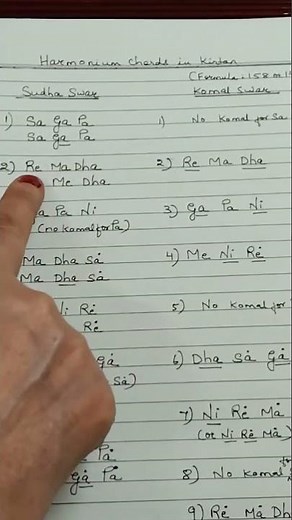 Harmonium Chords in Kirtan
(Formula: 158 or 1
Sudha Swar
Komal Swar
1) Sa Ga Pa
Sa Ga Pa
1) No Komal for Sa
2) Re Ma Dha
Me Dha
2) Re Ma Dha
a Pa Ni
(no Komal for Pa)
3) Ga Pa Ni
Ma Dha Sȧ
Ma Dha Sȧ
4) Me Ni Rė
Ni Rė
Rė
5) No Komal for
Gȧ
Sȧ)
6) Dha Sȧ Gȧ
7) Ni Rė Mȧ
(or Ni Rė Mȧ)
Pȧ
Gȧ Pȧ
8) No Komal for
9) Rė Mȧ Dh